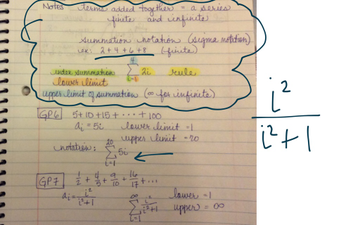 Notes terms added together = a series
finite and infinite
summation notation (sigma notation)
ex: 2+4+6+8 (finite)
index summation Σ 2i rule
i=1
lower limit
upper limit of summation (∞ for infinite)
GP6 5+10+15+...+100
ai = 5i lower limit = 1
upper limit = 20
notation: 20
Σ 5i
i=1
GP7 1/2 + 4/5 + 9/10 + 16/17 + ...
ai = i²/i²+1 ∞ Σ i²/i²+1 lower = 1
i=1 upper = ∞
i²
i²+1